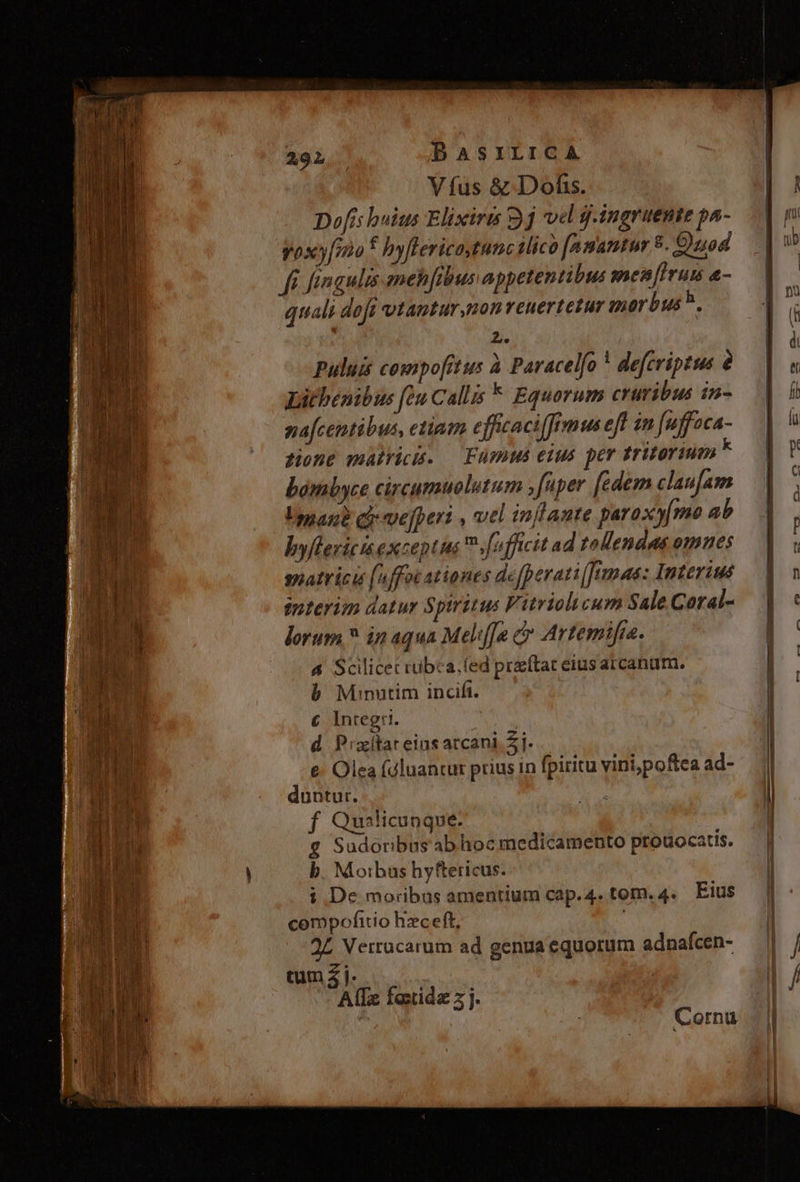 292 BASILICA
Vſus & Doſis.
Doſis huius Elixiris ℈j vel ij. ingruente pa-
roxyſmo f hyſterico, tunc ilicò ſanantur g. Quod
ſi ſingulis menſibus appetentibus menſtruis æ-
quali doſi vtantur, non reuertetur morbus h.
2.
Puluis compoſitus à Paracelſo i deſcriptus è
Lichenibus ſeu Callis k Equorum cruribus in-
naſcentibus, etiam efficaciſſimus eſt in ſuffoca-
tione matricis. Fumus eius per tritorium
bombyce circumuolutum, ſuper ſedem clauſam
manè & veſperi, vel inſtante paroxyſmo ab
hyſtericis exceptus m, ſufficit ad tollendas omnes
matricis ſuffocationes deſperatiſſimas: Interius
interim datur Spiritus Vitrioli cum Sale Coral-
lorum n in aqua Meliſſæ & Artemiſiæ.
a Scilicet rubea, ſed præſtat eius arcanum.
b Minutim inciſi.
c Integri.
d Præſtat eius arcani ʒj.
e Olea ſoluantur prius in ſpiritu vini, poſtea ad-
duntur.
f Qualicunque.
g Sudoribus ab hoc medicamento prouocatis.
h Morbus hyſtericus.
i De moribus amentium cap. 4. tom. 4. Eius
compoſitio hæc eſt,
℞ Verrucarum ad genua equorum adnaſcen-
tum ℥j.
Aſſæ fœtidæ ʒj.
Cornu